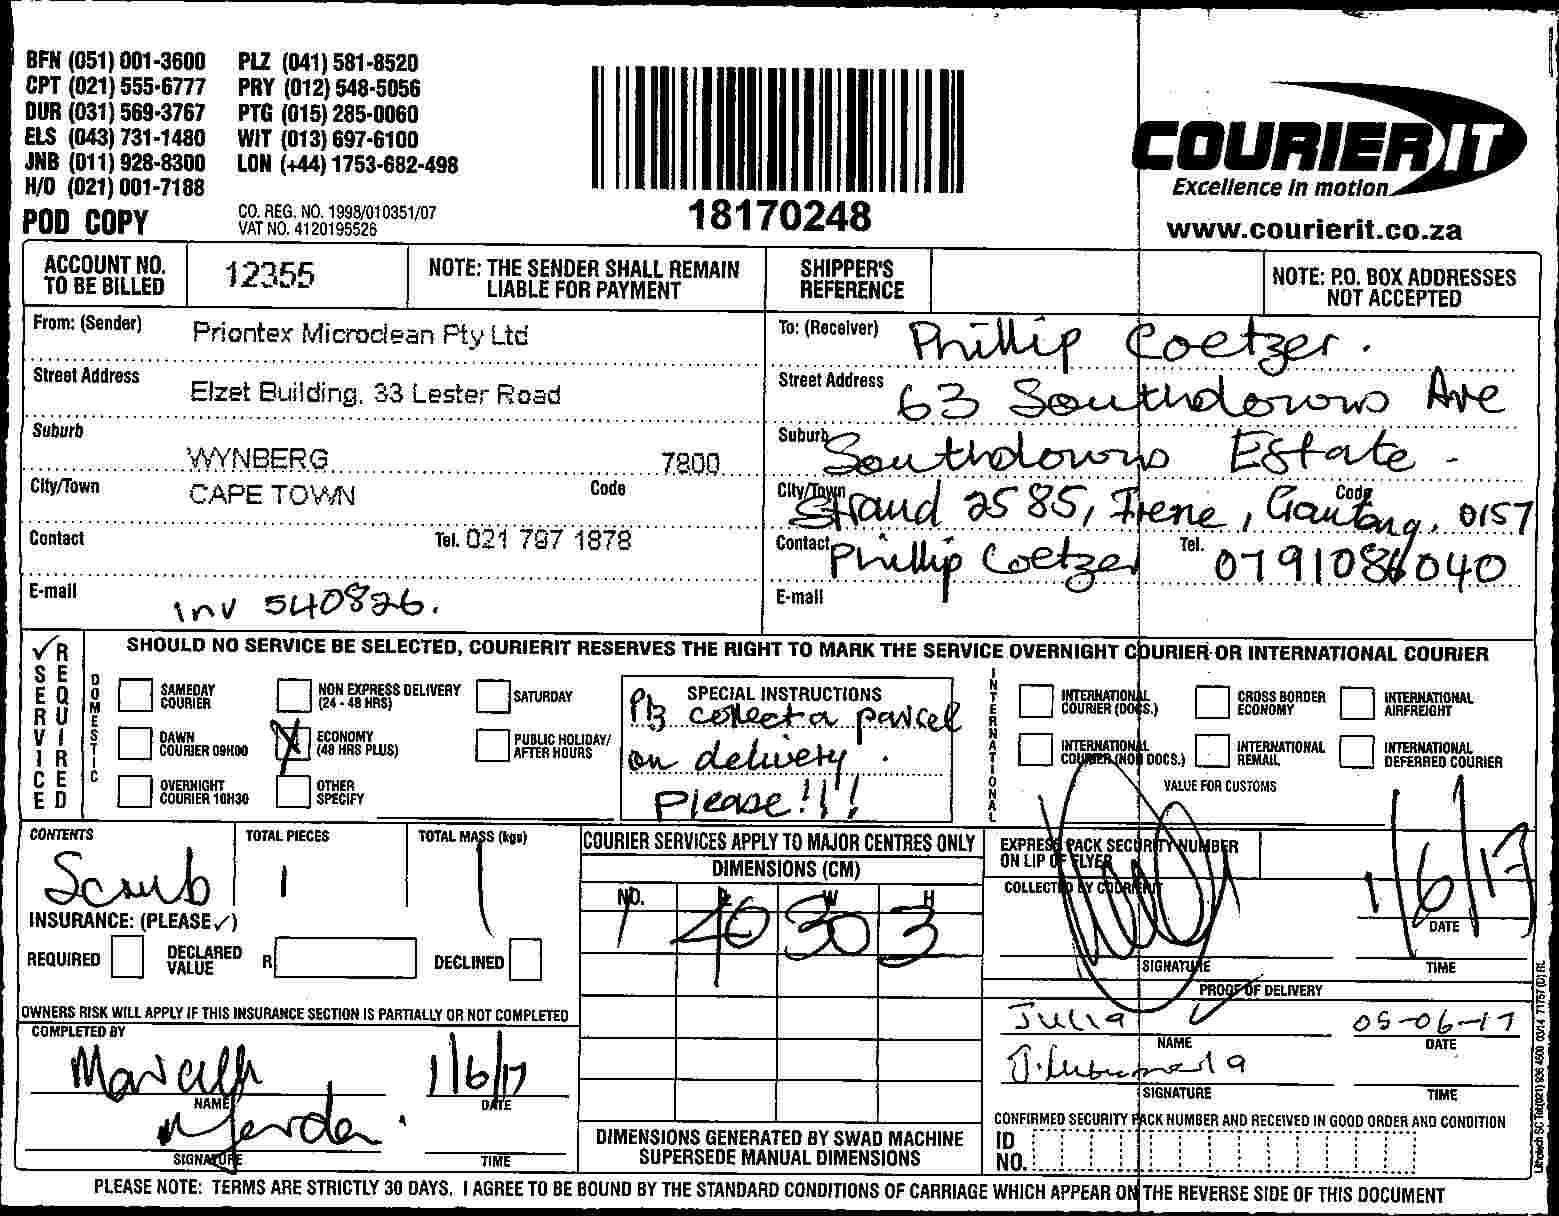 BFN (051) 001-3600 PLZ (041) 581-8520
CPT (021) 555-6777 PRY (012) 548-5056
DUR (031) 569-3767 PTG (015) 285-0060
ELS (043) 731-1480 WIT (013) 697-6100
JNB (011) 928-8300 LON (+44) 1753-682-498
H/O (021) 001-7188
POD COPY
CO. REG. NO. 1998/010351/07
VAT NO. 4120195526
18170248
COURIER IT
Excellence in motion
www.courierit.co.za
ACCOUNT NO. TO BE BILLED
12355
NOTE: THE SENDER SHALL REMAIN LIABLE FOR PAYMENT
SHIPPER'S REFERENCE
NOTE: P.O. BOX ADDRESSES NOT ACCEPTED
From: (Sender) Priontex Microclean Pty Ltd
Street Address Elzet Building, 33 Lester Road
Suburb WYNBERG 7800
City/Town CAPE TOWN Code
Contact Tel. 021 797 1878
E-mail inv 540826.
To: (Receiver) Phillip Coetzer.
Street Address 63 Southdowns Ave
Suburb Southdowns Estate.
City/Town Strand 2585, Irene, Gauteng, Code 0157
Contact Phillip Coetzer Tel. 0791086040
E-mail
SERVICE REQUIRED
SHOULD NO SERVICE BE SELECTED, COURIERIT RESERVES THE RIGHT TO MARK THE SERVICE OVERNIGHT COURIER OR INTERNATIONAL COURIER
DOMESTIC
SAMEDAY COURIER
NON EXPRESS DELIVERY (24 - 48 HRS)
SATURDAY
DAWN COURIER 09H00
ECONOMY (48 HRS PLUS)
PUBLIC HOLIDAY/ AFTER HOURS
OVERNIGHT COURIER 10H30
OTHER SPECIFY
SPECIAL INSTRUCTIONS
Plz collect a parcel
on delivery.
Please!!!
INTERNATIONAL
INTERNATIONAL COURIER (DOCS.)
CROSS BORDER ECONOMY
INTERNATIONAL AIRFREIGHT
INTERNATIONAL COURIER (NON DOCS.)
INTERNATIONAL REMAIL
INTERNATIONAL DEFERRED COURIER
VALUE FOR CUSTOMS
CONTENTS
Scrub
TOTAL PIECES
1
TOTAL MASS (kgs)
1
INSURANCE: (PLEASE ✓)
REQUIRED
DECLARED VALUE R
DECLINED
OWNERS RISK WILL APPLY IF THIS INSURANCE SECTION IS PARTIALLY OR NOT COMPLETED
COMPLETED BY
NAME
1/6/17
DATE
SIGNATURE
TIME
COURIER SERVICES APPLY TO MAJOR CENTRES ONLY
DIMENSIONS (CM)
NO. L W H
1 40 30 3
DIMENSIONS GENERATED BY SWAD MACHINE
SUPERSEDE MANUAL DIMENSIONS
EXPRESS PACK SECURITY NUMBER
ON LIP OF FLYER
COLLECTED BY COURIERIT
1/6/17
DATE
SIGNATURE
TIME
PROOF OF DELIVERY
Julia
NAME
05-06-17
DATE
SIGNATURE
TIME
CONFIRMED SECURITY PACK NUMBER AND RECEIVED IN GOOD ORDER AND CONDITION
ID NO.
PLEASE NOTE: TERMS ARE STRICTLY 30 DAYS. I AGREE TO BE BOUND BY THE STANDARD CONDITIONS OF CARRIAGE WHICH APPEAR ON THE REVERSE SIDE OF THIS DOCUMENT